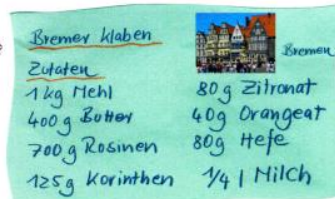 Bremer Klaben
Bremen
Zutaten
1 kg Mehl
400 g Butter
700 g Rosinen
125 g Korinthen
80 g Zitronat
40 g Orangeat
80 g Hefe
1/4 l Milch